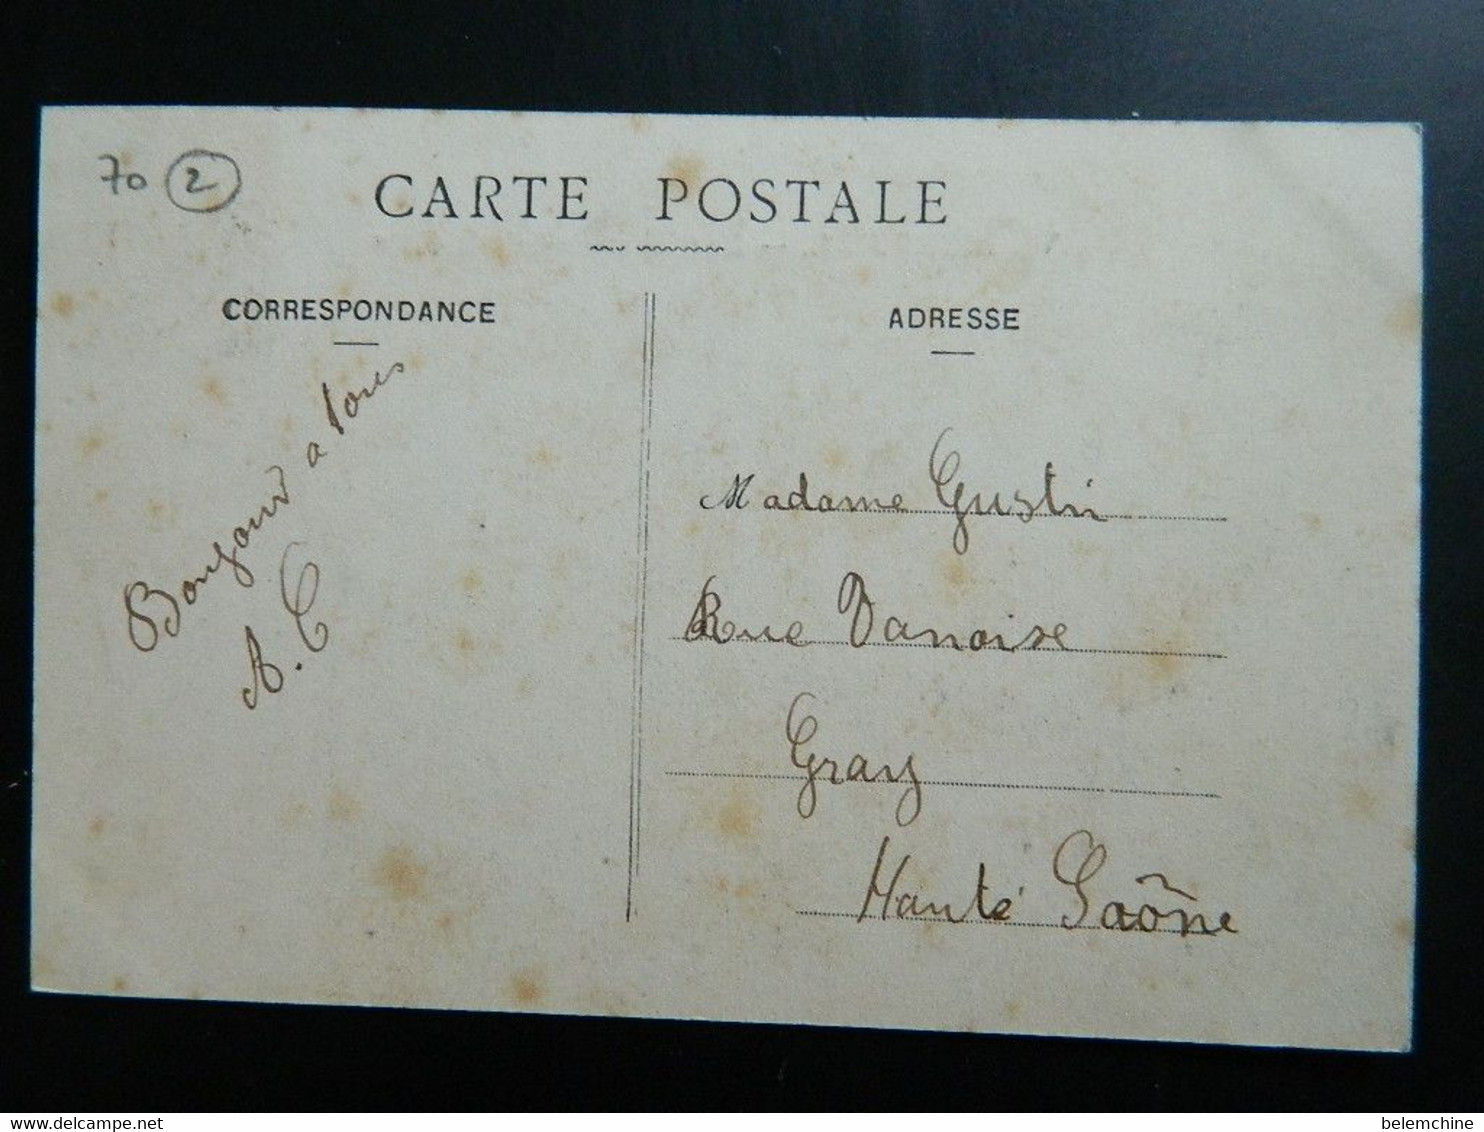 70 2
CARTE POSTALE
CORRESPONDANCE
Bonjour a tous
A. C
ADRESSE
Madame Gustin
Rue Vanoise
Gray
Hauté Saône
delcampe.net
belemchine